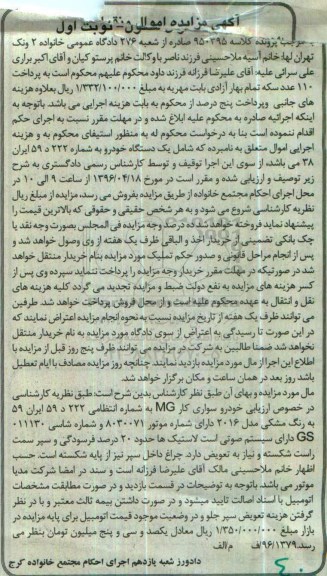 آگهی مزایده اموال نوبت اول
به موجب پرونده کلاسه ۹۵۰۳۹۵ صادره از شعبه ۲۷۶ دادگاه عمومی خانواده ۲ ونک
تهران لها: خانم آسیه ملاحسینی فرزند ناصر با وکالت خانم پرستو کیان و آقای اکبر براری
علی سرائی علیه: آقای علیرضا فرزانه فرزند داود محکوم علیهم محکوم است به پرداخت
۱۱۰ عدد سکه تمام بهار آزادی بابت مهریه به مبلغ ۱/۳۳۲/۱۰۰/۰۰۰ ریال بعلاوه هزینه
های جانبی وپرداخت پنج درصد از محکوم به بابت هزینه اجرایی می باشد. باتوجه به
اینکه اجرائیه صادره به محکوم علیه ابلاغ شده و در مهلت مقرر نسبت به اجرای حکم
اقدام ننموده است بنا به درخواست محکوم له به منظور استیفای محکوم به و هزینه
اجرایی اموال متعلق به نامبرده که شامل یک دستگاه خودرو به شماره ۲۲۲ د ۵۹ ایران
۳۸ می باشد، از سوی این اجرا توقیف و توسط کارشناس رسمی دادگستری به شرح
زیر توصیف و ارزیابی شده و مقرر است در مورخ ۱۳۹۶/۰۴/۱۸ از ساعت ۹ الی ۱۰ در
محل اجرای احکام مجتمع خانواده از طریق مزایده بفروش می رسد، مزایده از مبلغ ریال
نظریه کارشناسی شروع می شود و به هر شخص حقیقی و حقوقی که بالاترین قیمت را
پیشنهاد نماید فروخته خواهد شد ده درصد وجه مزایده فی المجلس بصورت وجه نقد یا
چک بانکی تضمینی از خریدار اخذ و الباقی ظرف یک هفته از وی وصول خواهد شد و
پس از انجام مراحل قانونی و صدور حکم تملیک مورد مزایده بنام خریدار منتقل خواهد
شد در صورتیکه در مهلت مقرر خریدار وجه مزایده را پرداخت ننماید سپرده وی پس از
کسر هزینه های مزایده به نفع دولت ضبط و مزایده تجدید می گردد کلیه هزینه های
نقل و انتقال به عهده محکوم علیه است و از محل فروش پرداخت خواهد شد. طرفین
می توانند ظرف یک هفته از تاریخ مزایده نسبت به نحوه انجام مزایده اعتراض نمایند که
در این صورت تا رسیدگی به اعتراض از سوی دادگاه مورد مزایده به نام خریدار منتقل
نخواهد شد ضمنا طالبین به شرکت در مزایده می توانند ظرف پنج روز قبل از مزایده با
اطلاع این اجرا از مال مورد مزایده بازدید نمایند. چنانچه روز مزایده مصادف با ایام تعطیل
باشد روز بعد در همان ساعت و مکان برگزار خواهد شد.
مال مورد مزایده و بهای آن طبق نظر کارشناس بدین شرح است: طبق نظریه کارشناسی
در خصوص ارزیابی خودرو سواری کار MG به شماره انتظامی ۲۲۲ د ۵۹ ایران ۵۹
به رنگ مشکی مدل ۲۰۱۶ دارای شماره موتور ۸۰۳۰۰۷۱ و شماره شاسی ۰۱۱۱۳۰
GS دارای سیستم صوتی است لاستیک ها حدود ۲۰ درصد فرسودگی و سپر سمت
راست شکسته و نیاز به تعویض دارد. چراغ داخل سپر نیز از پایه شکسته است: حسب
اظهار خانم ملاحسینی مالک آقای علیرضا فرزانه است و سند در امضا شرکت مدیا
موتور می باشد. باتوجه به توضیحات در قسمت بازدید و در صورت مطابقت مشخصات
اتومبیل با اسناد اصالت تایید میشود و در صورت داشتن بیمه ثالث معتبر و با در نظر
گرفتن هزینه تعویض سپر جلو و در وضعیت موجود قیمت اتومبیل برای پایه مزایده در
بازار مبلغ ۱/۳۵۰/۰۰۰/۰۰۰ ریال معادل یکصد و سی و پنج میلیون تومان بنظر می
رسد. ۹۶/۱۳۷۹/ف م الف
دادورز شعبه یازدهم اجرای احکام مجتمع خانواده کرج